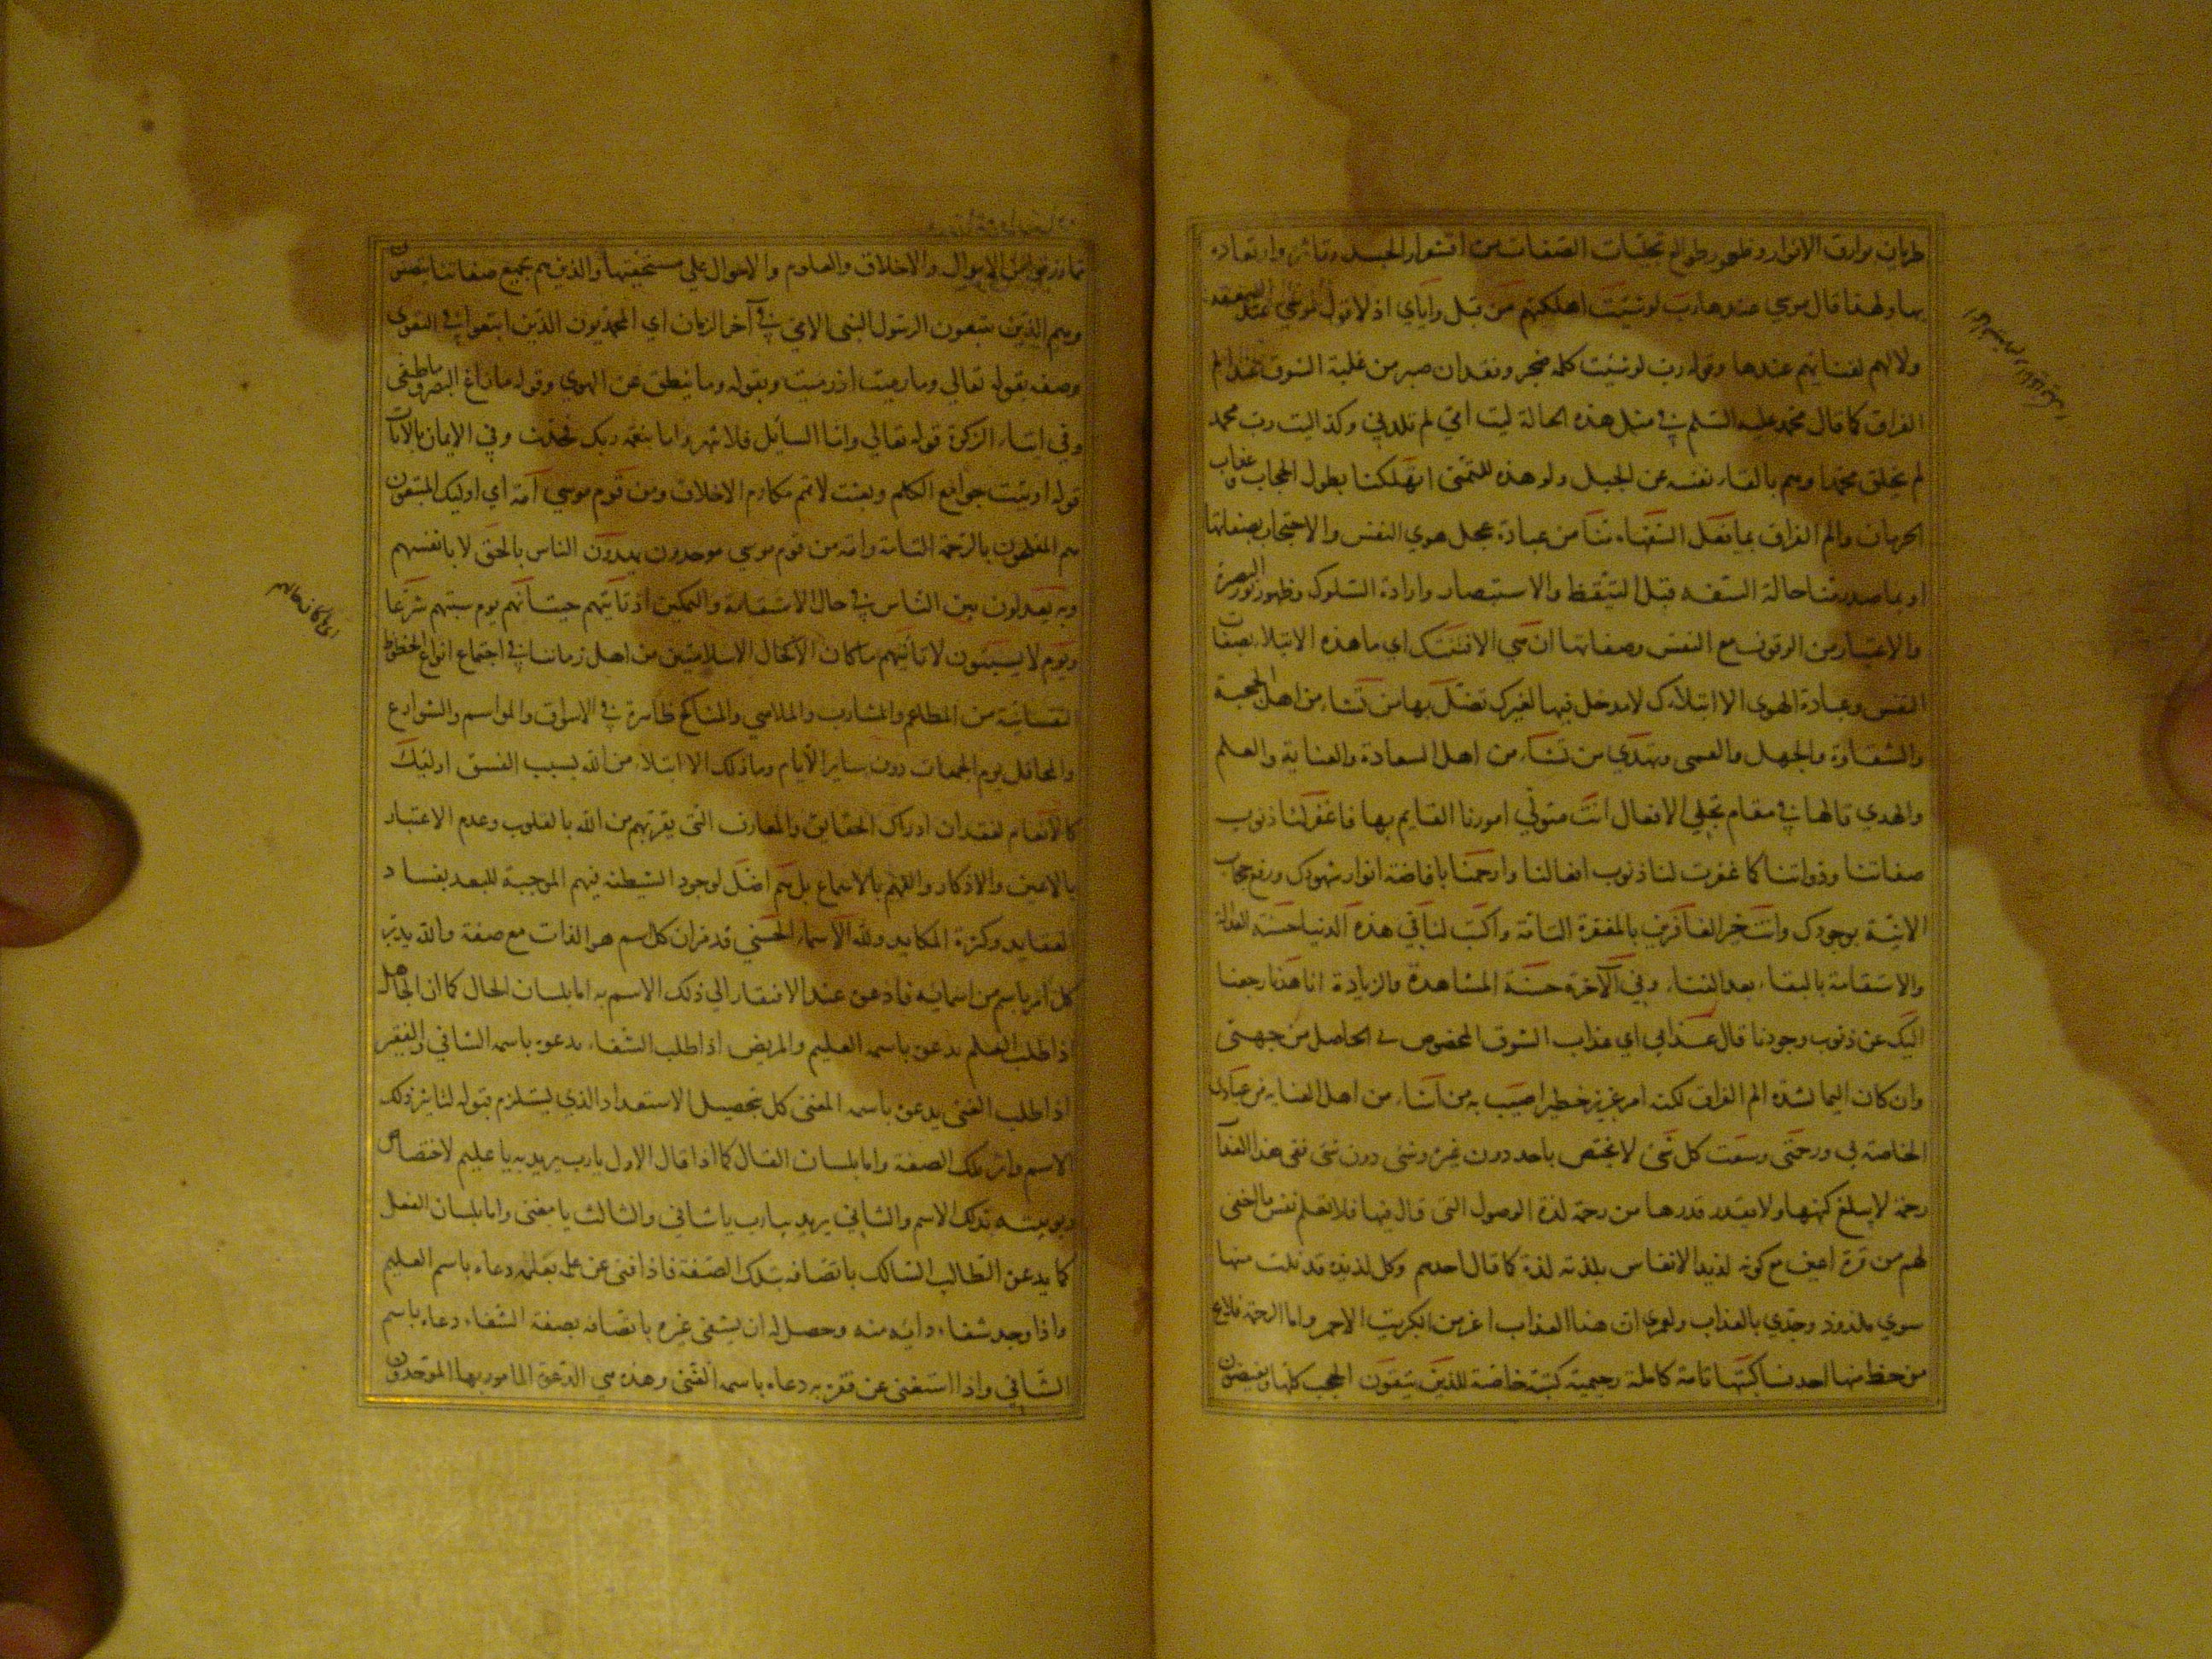 طريان بوارق الانوار وظهور طوالع تجليات الصفات من اقشعرار الجسد وتاثره وارتعاده
بها ولهذا قال موسي عندها رب لو شيت اهلكتهم من قبل واياي اذ لا قول لموسي عند الصعقة
ولا لهم لفنائهم عندها وقوله رب لو شيت كلمة ضجر وفقدان صبر من غلبة الشوق عند الم
الفراق كما قال محمد عليه السلم في مثل هذه الحالة ليت امي لم تلدني وكذا ليت رب محمد
لم يخلق محمدا وهم بالقاء نفسه عن الجبل ولو هذه للتمني اتهلكنا بطول الحجاب وعذاب
الحرمان والم الفراق بما فعل السفهاء منا من عبادة عجل هوي النفس والاحتجاب بصفاتها
او بما صدر منا حالة السفه قبل التيقظ والاستبصار وارادة السلوك وظهور نور البصيرة
والاعتبار من الوقوف مع النفس وصفاتها ان هي الا فتنتك اي ما هذه الابتلا بصفات
النفس وعبادة الهوي الا ابتلاؤك لا مدخل فيها لغيرك تضل بها من تشاء من اهل الحجبة
والشقاوة والجهل والعمي وتهدي من تشاء من اهل السعادة والعناية والعلم
والهدي قالها في مقام تجلي الافعال انت متولي امورنا القايم بها فاغفر لنا ذنوب
صفاتنا وذواتنا كما غفرت لنا ذنوب افعالنا وارحمنا بافاضة انوار شهودك ورفع حجاب
الانيّة بوجودك وانت خير الغافرين بالمغفرة التامة واكتب لنا في هذه الدنيا حسنة العدالة
والاستقامة بالبقاء بعد الفناء وفي الآخرة حسنة المشاهدة والزيادة انا هدنا رجعنا
اليك عن ذنوب وجودنا قال عذابي اي عذاب الشوق المخصوص بي الحاصل من جهتي
وان كان اليما لشدة الم الفراق لكنه امر عزيز خطير اصيب به من اشاء من اهل العناية من عبادي
الخاصة بي ورحمتي وسعت كل شئ لا يختص باحد دون غيره وشئ دون شئ ففي هذا العذاب
رحمة لا يبلغ كنهها ولا يقدر قدرها من رحمة لذة الوصول التي قال فيها فلا تعلم نفس ما اخفي
لهم من قرة اعين مع كونه لذيذ الانفاس بلذته لذة كما قال احدهم وكل لذيذة قد نلت منها
سوي ملذوذ وجدي بالعذاب ولعمري ان هذا العذاب اعز من الكبريت الاحمر واما الرحمة فلا يخلو
من حظ منها احد فساكتبها تامة كاملة رحيمية كتبة خاصة للذين يتقون الحجب كلها ويفيضون
مما رزقوا من الاموال والاخلاق والعلوم والاحوال علي مستحقيها والذين هم بجميع صفاتنا يتصفون
وهم الذين يتبعون الرسول النبي الامي في آخر الزمان اي المحمديون الذين اتبعوا في التقوي
وصفه بقوله تعالي وما رميت اذ رميت وبقوله وما ينطق عن الهوي وقوله ما زاغ البصر وما طغي
وفي ايتاء الزكوة قوله تعالي واما السايل فلا تنهر واما بنعمة ربك فحدث وفي الايمان بالآيات
قوله اوتيت جوامع الكلم وبعثت لاتمم مكارم الاخلاق ومن قوم موسي امة اي اوليك المتقون
هم المفلحون بالرحمة التامة وامة من قوم موسي موحدون يهدون الناس بالحق لا بانفسهم
وبه يعدلون بين الناس في حال الاستقامة والتمكين اذ تاتيهم حيتانهم يوم سبتهم شرعا
ويوم لا يسبتون لا تاتيهم ما كان الا كحال الاسلاميين من اهل زماننا في اجتماع انواع الحظوظ
النفسانية من المطاعم والمشارب والملاهي والمناكح ظاهرة في الاسواق والمواسم والشوارع
والمحافل يوم الجمعات دون ساير الايام وما ذلك الا ابتلاء من الله بسبب الفسق اوليك
كالانعام لفقدان ادراك الحقايق والمعارف التي يقربهم من الله بالقلوب وعدم الاعتبار
بالاعين والاذكار والفهم بالاسماع بل هم اضل لوجود الشيطنة فيهم الموجبة للبعد بفساد
العقايد وكثرة المكايد ولله الاسماء الحسني قد مر ان كل اسم هو الذات مع صفة والله يدبر
كل امر باسم من اسمائه فادعوه عند الافتقار الي ذلك الاسم به اما بلسان الحال كما ان الجاهل
اذا طلب العلم يدعوه باسمه العليم والمريض اذا طلب الشفاء يدعوه باسمه الشافي والفقير
اذا طلب الغني يدعوه باسمه المغني كل بتحصيل الاستعداد الذي يستلزم قبوله لتاثير ذلك
الاسم واثر تلك الصفة واما بلسان القال كما اذا قال الاول يا رب يريد به يا عليم لاختصاص
ربوبيته بذلك الاسم والثاني يريد بيارب يا شافي والثالث يا مغني واما بلسان الفعل
كما يدعوه الطالب السالك باتصافه بتلك الصفة فاذا فني عن علمه بعلمه دعاه باسم العليم
واذا وجد شفاء دائه منه وحصل له ان يشفي غيره باتصافه بصفة الشفاء دعاه باسم
الشافي واذا استغني عن فقره به دعاه باسمه الغني وهذه هي الدعوة المامور بها الموحدون